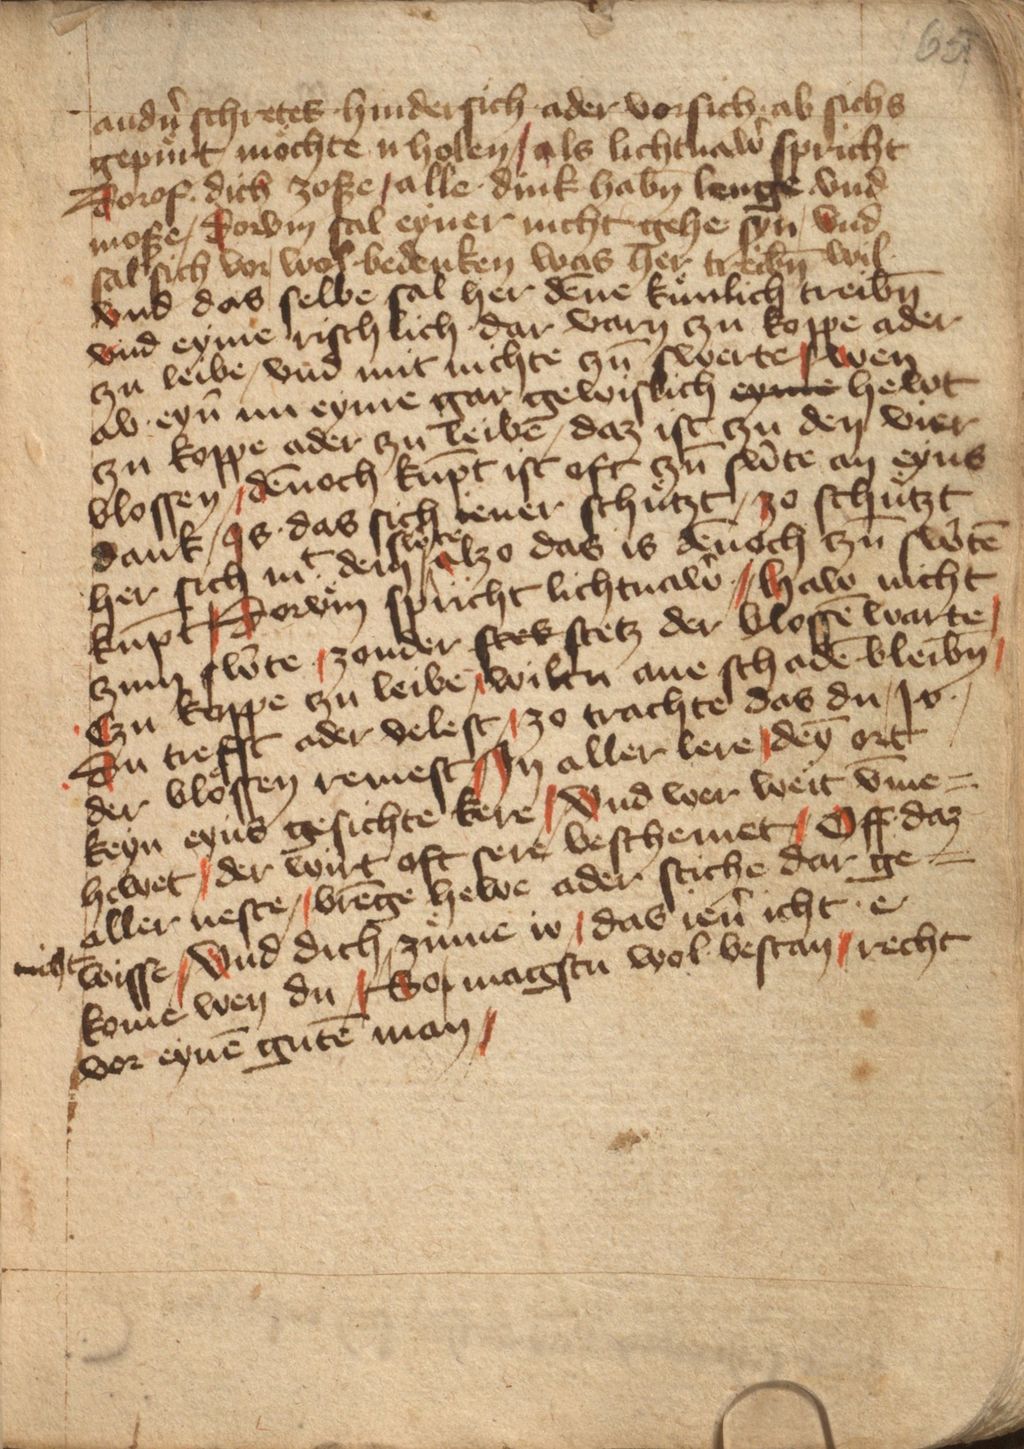 65
andn̄ schretek · hindersich · ader vorsich · ab sichs
gepürt möchte u holen / als lichtnaw̄ spricht
Dorof · dich zoße / alle · dink habn̄ lenge vnd
moße / Dorvm sal eyner nicht gehe syn / vnd
sal sich vor wol · bedenken was her treibn̄ wil
vnd das selbe sal her deñe künlich treibn̄
vnd eyme risch lich · dar varn zu koppe ader
zu leibe / vnd mit nichte zū swerte / wen
ab · eyn̄ im eyme gar gewislich eyme hewt
zu koppe ader zu leibē / daz ist zu den vier
blossen / deñoch kūpt ist oft zū sw̄te an eyns
dank / Js · das sich iener schützt / zo schützt
her sich mt̄ · dem sw̄te / alzo das is deñoch zū sw̄tē
kūpt / Dorvm spricht lichtnaw̄ / haw nicht
zum sw̄te / zonder stek stetz der blossē warte /
Czu koppe zu leibe / wiltu ane schadē bleibn̄ /
Du trefst ader velest / zo trachte das du / w ·
der blössen remest / Jn aller lere / deȳ ort
keyn eyns gesichte kere / Vnd wer weit v̄me =
hewet / der wirt oft sere beschemet / Off · daz
aller neste / brēge hewe ader stiche dar ge =
wisse / Vnd dich zūme io / das ien̄ icht · e
nicht
kome wen du / So magstu wol · bestan / recht
vor eynē gutē man /